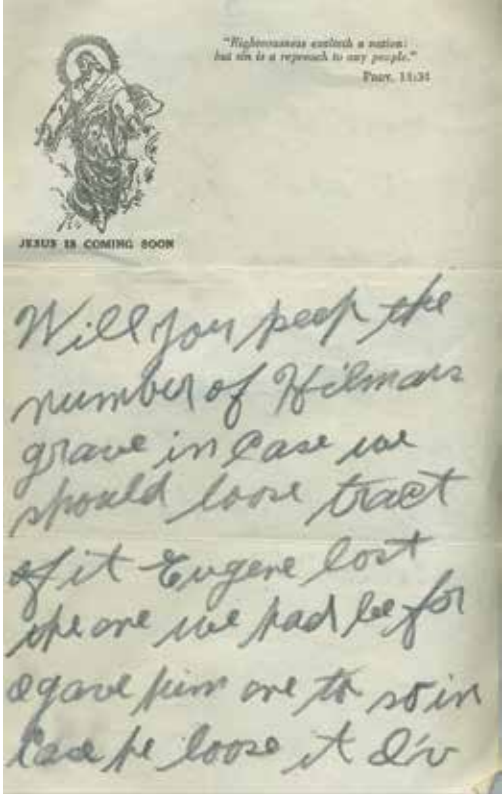 "Righteousness exalteth a nation:
but sin is a reproach to any people."
Prov. 14:34
JESUS IS COMING SOON
Will you keep the
number of Hilmars
grave in Case we
should loose tract
of it Eugene lost
the one we had be for
I gave him one to so in
Case he loose it I'v